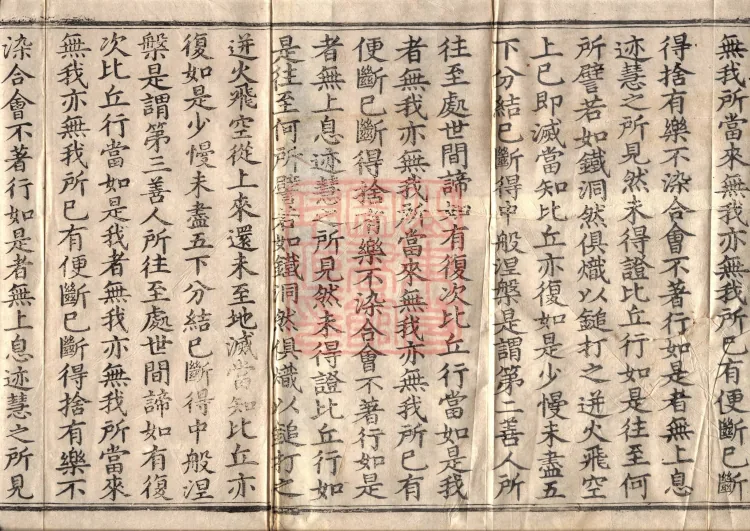 無我所當來無我亦無我所已有便斷已斷
得捨有樂不染合會不著行如是者無上息
迹慧之所見然未得證比丘行如是往至何
所譬若如鐵洞然俱熾以鎚打之迸火飛空
上已即滅當知比丘亦復如是少慢未盡五
下分結已斷得中般涅槃是謂第二善人所
往至處世間諦如有復次比丘行當如是我
者無我亦無我所當來無我亦無我所已有
便斷已斷得捨有樂不染合會不著行如是
者無上息迹慧之所見然未得證比丘行如
是往至何所譬若如鐵洞然俱熾以鎚打之
迸火飛空從上來還未至地滅當知比丘亦
復如是少慢未盡五下分結已斷得中般涅
槃是謂第三善人所往至處世間諦如有復
次比丘行當如是我者無我亦無我所當來
無我亦無我所已有便斷已斷得捨有樂不
染合會不著行如是者無上息迹慧之所見